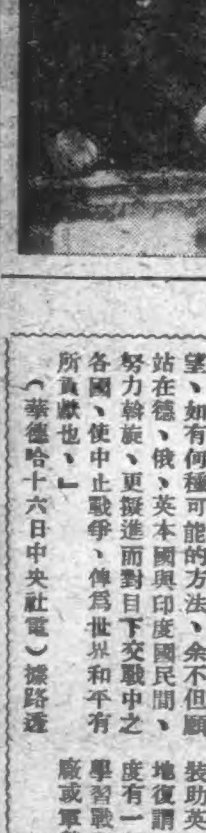 望、如有何種可能的方法、余不但願
站在德、俄、英本國與印度國民間、
努力斡旋、更擬進而對目下交戰中之
各國、使中止戰爭、俾爲世界和平有
所貢獻也、」
（華德哈十六日中央社電）據路透
裝助英
地復謂
度有一
學習戰
廠或軍